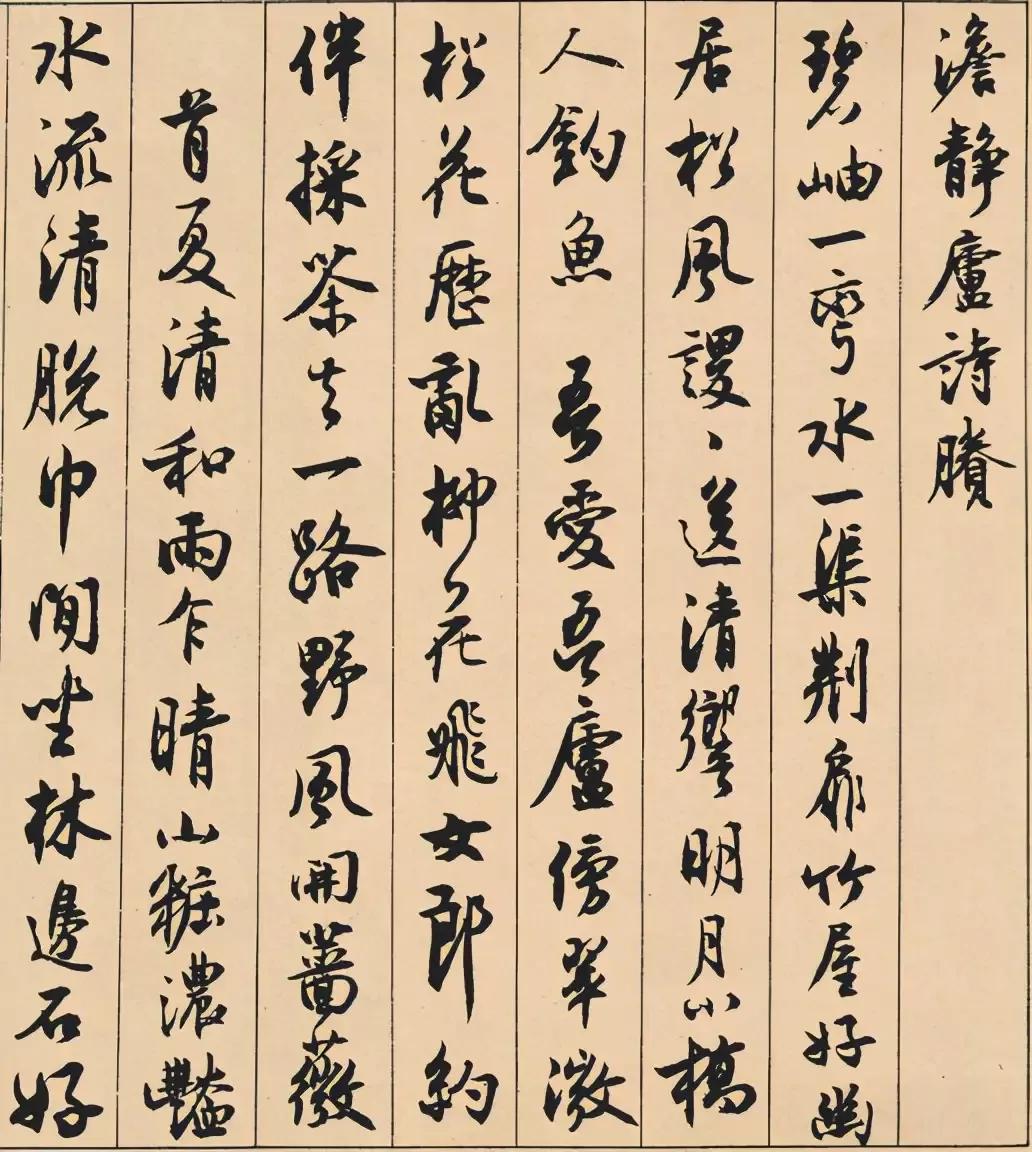 澹靜廬詩賸
碧岫一彎水一渠荆扉竹屋好幽
居松風謖〻送清響明月小橋
人釣魚 吾愛吾廬傍翠微
松花歷亂柳花飛女郎約
伴採茶去一路野風開薔薇
首夏清和雨乍晴山粧濃豔
水流清脫巾閒坐林邊石好